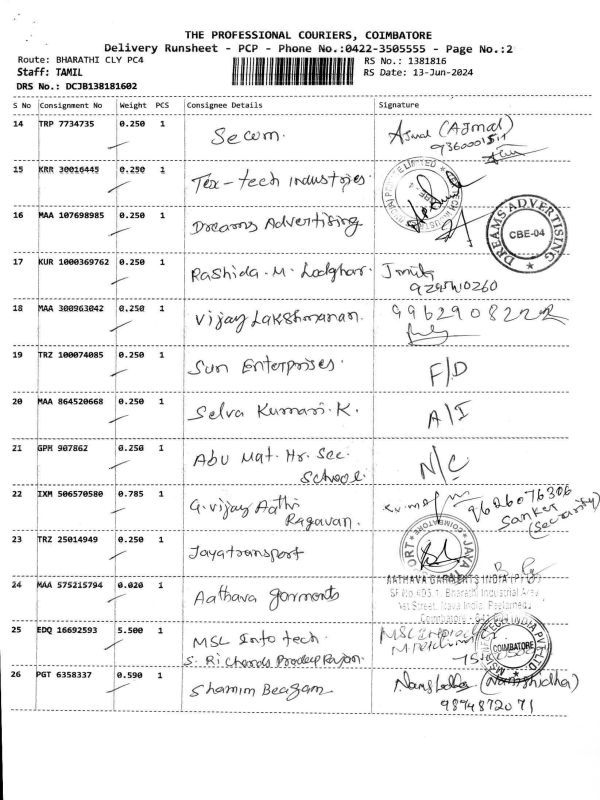 THE PROFESSIONAL COURIERS, COIMBATORE
Delivery Runsheet - PCP - Phone No.:0422-3505555 - Page No.:2
Route: BHARATHI CLY PC4 RS No.: 1381816
Staff: TAMIL RS Date: 13-Jun-2024
DRS No.: DCJB138181602
S No Consignment No Weight PCS Consignee Details Signature
14 TRP 7734735 0.250 1 Secom. Ajmal (Ajmal)
15 KRR 30016445 0.250 1 Tex-tech industries.
16 MAA 107698985 0.250 1 Dreams Advertising
DREAMS ADVERTISING
CBE-04
17 KUR 1000369762 0.250 1 Rashida. M. Lodghar.
18 MAA 300963042 0.250 1 Vijay Lakshmanan.
19 TRZ 100074085 0.250 1 Sun Enterprises. F/D
20 MAA 864520668 0.250 1 Selva Kumari. K. A/I
21 GPM 907862 0.250 1 Abu Mat. Hr. Sec. School. N/C
22 IXM 506570580 0.785 1 G. Vijay Aathi Ragavan. 9626076306
Sanker (Security)
23 TRZ 25014949 0.250 1 Jayatransport
24 MAA 575215794 0.020 1 Aathava garments
AATHAVA GARMENTS INDIA (P) LTD
SF No.493 1, Bharathi Industrial Area
1st Street, Nava India, Peelamedu
25 EDQ 16692593 5.500 1 MSL Info tech.
S. Richards Pradeep Rajan.
COIMBATORE
26 PGT 6358337 0.590 1 Shamim Beagam (Namshidha)
9894872071